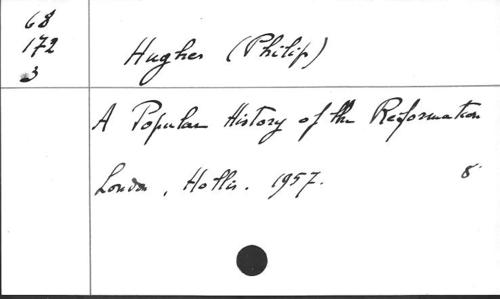 68
172
3
Hughes (Philip)
A Popular History of the Reformation
London, Hollis. 1957. 8°